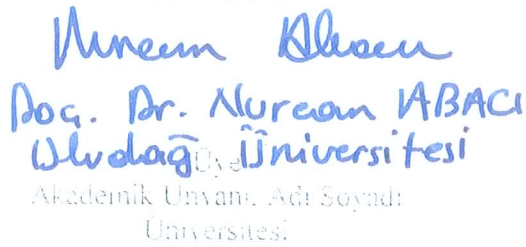 Doç. Dr. Nurcan ABACI
Uludağ Üniversitesi
Üye
Akademik Unvanı, Adı Soyadı
Üniversitesi